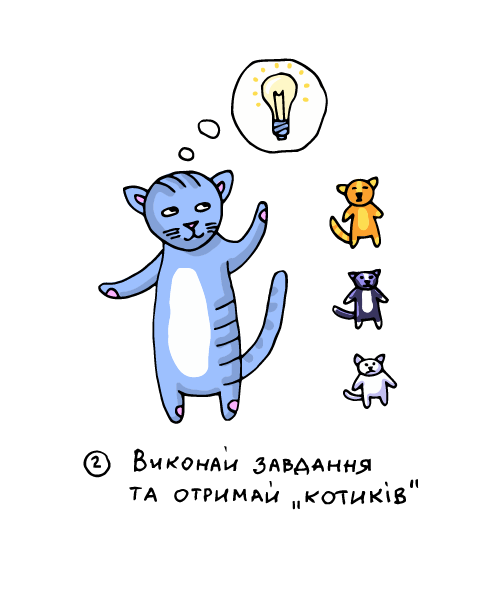 2 Виконай завдання
та отримай „котиків"